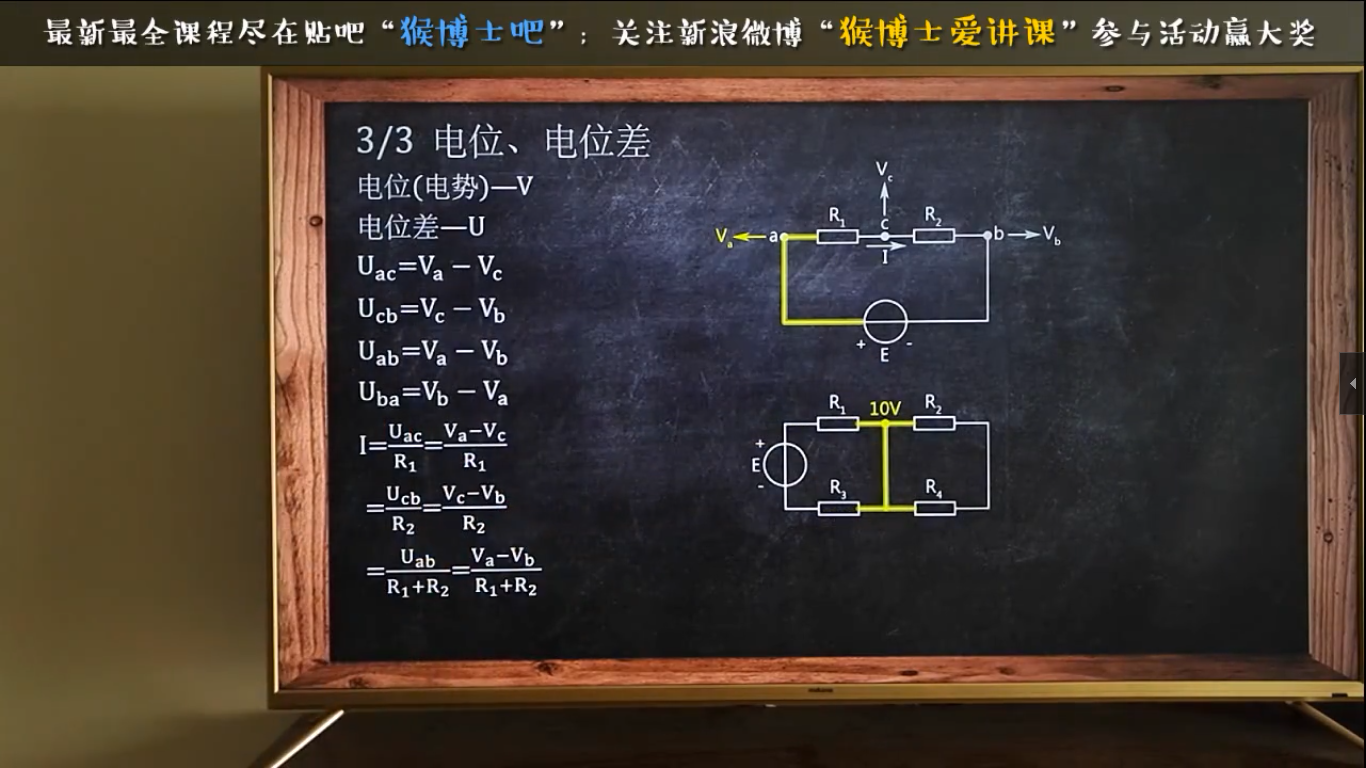 最新最全课程尽在贴吧“猴博士吧”；关注新浪微博“猴博士爱讲课”参与活动赢大奖
3/3 电位、电位差
电位(电势)—V
电位差—U
Uac=Va − Vc
Ucb=Vc − Vb
Uab=Va − Vb
Uba=Vb − Va
I=Uac/R1=Va−Vc/R1
=Ucb/R2=Vc−Vb/R2
=Uab/R1+R2=Va−Vb/R1+R2
Vc
R1 R2
Va a c b Vb
I
+ -
E
R1 10V R2
+
E
-
R3 R4